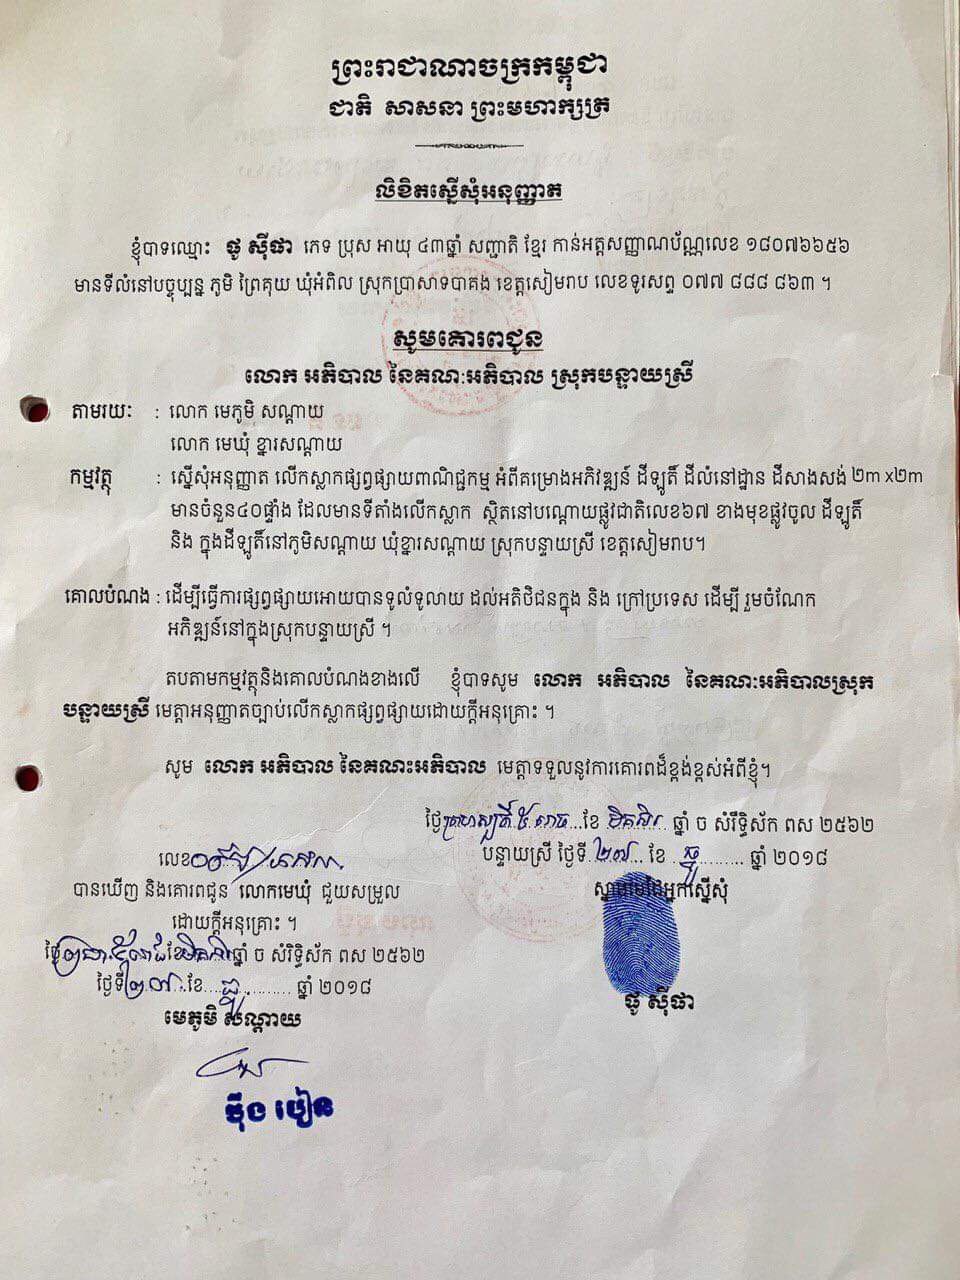 ព្រះរាជាណាចក្រកម្ពុជា
ជាតិ សាសនា ព្រះមហាក្សត្រ
លិខិតស្នើសុំអនុញ្ញាត
ខ្ញុំបាទឈ្មោះ ផូ ស៊ីផា ភេទ ប្រុស អាយុ ៤៣ឆ្នាំ សញ្ជាតិ ខ្មែរ កាន់អត្តសញ្ញាណប័ណ្ណលេខ ១៨០៧៦៦៥៦
មានទីលំនៅបច្ចុប្បន្ន ភូមិ ព្រៃគុយ ឃុំអំពិល ស្រុកប្រាសាទបាគង ខេត្តសៀមរាប លេខទូរសព្ទ ០៧៧ ៨៨៨ ៨៦៣ ។
សូមគោរពជូន
លោក អភិបាល នៃគណៈអភិបាល ស្រុកបន្ទាយស្រី
តាមរយៈ : លោក មេភូមិ សណ្ដាយ
លោក មេឃុំ ខ្នារសណ្ដាយ
កម្មវត្ថុ : ស្នើសុំអនុញ្ញាត លើកស្លាកផ្សព្វផ្សាយពាណិជ្ជកម្ម អំពីគម្រោងអភិវឌ្ឍន៍ ដីឡូតិ៍ ដីលំនៅដ្ឋាន ដីសាងសង់ ២m x២m
មានចំនួន៤០ផ្ទាំង ដែលមានទីតាំងលើកស្លាក ស្ថិតនៅបណ្ដោយផ្លូវជាតិលេខ៦៧ ខាងមុខផ្លូវចូល ដីឡូតិ៍
និង ក្នុងដីឡូតិ៍នៅភូមិសណ្ដាយ ឃុំខ្នារសណ្ដាយ ស្រុកបន្ទាយស្រី ខេត្តសៀមរាប។
គោលបំណង : ដើម្បីធ្វើការផ្សព្វផ្សាយអោយបានទូលំទូលាយ ដល់អតិថិជនក្នុង និង ក្រៅប្រទេស ដើម្បី រួមចំណែក
អភិឌ្ឍន៍នៅក្នុងស្រុកបន្ទាយស្រី ។
តបតាមកម្មវត្ថុនិងគោលបំណងខាងលើ ខ្ញុំបាទសូម លោក អភិបាល នៃគណៈអភិបាលស្រុក
បន្ទាយស្រី មេត្តាអនុញ្ញាតច្បាប់លើកស្លាកផ្សព្វផ្សាយដោយក្ដីអនុគ្រោះ ។
សូម លោក អភិបាល នៃគណះអភិបាល មេត្តាទទួលនូវការគោរពដ៏ខ្ពង់ខ្ពស់អំពីខ្ញុំ។
ថ្ងៃព្រហស្បតិ៍ ៥ រោច ខែ មិគសិរ ឆ្នាំ ច សំរឹទ្ធិស័ក ពស ២៥៦២
បន្ទាយស្រី ថ្ងៃទី ២៧ ខែ ធ្នូ ឆ្នាំ ២០១៨
ស្នាមមេដៃអ្នកស្នើសុំ
ផូ ស៊ីផា
លេខ
បានឃើញ និងគោរពជូន លោកមេឃុំ ជួយសម្រួល
ដោយក្ដីអនុគ្រោះ ។
ថ្ងៃ ខែមិគសិរ ឆ្នាំ ច សំរិទ្ធិស័ក ពស ២៥៦២
ថ្ងៃទី ២៧ ខែ ធ្នូ ឆ្នាំ ២០១៨
មេភូមិ សណ្ដាយ
ម៉ឹង បៀន